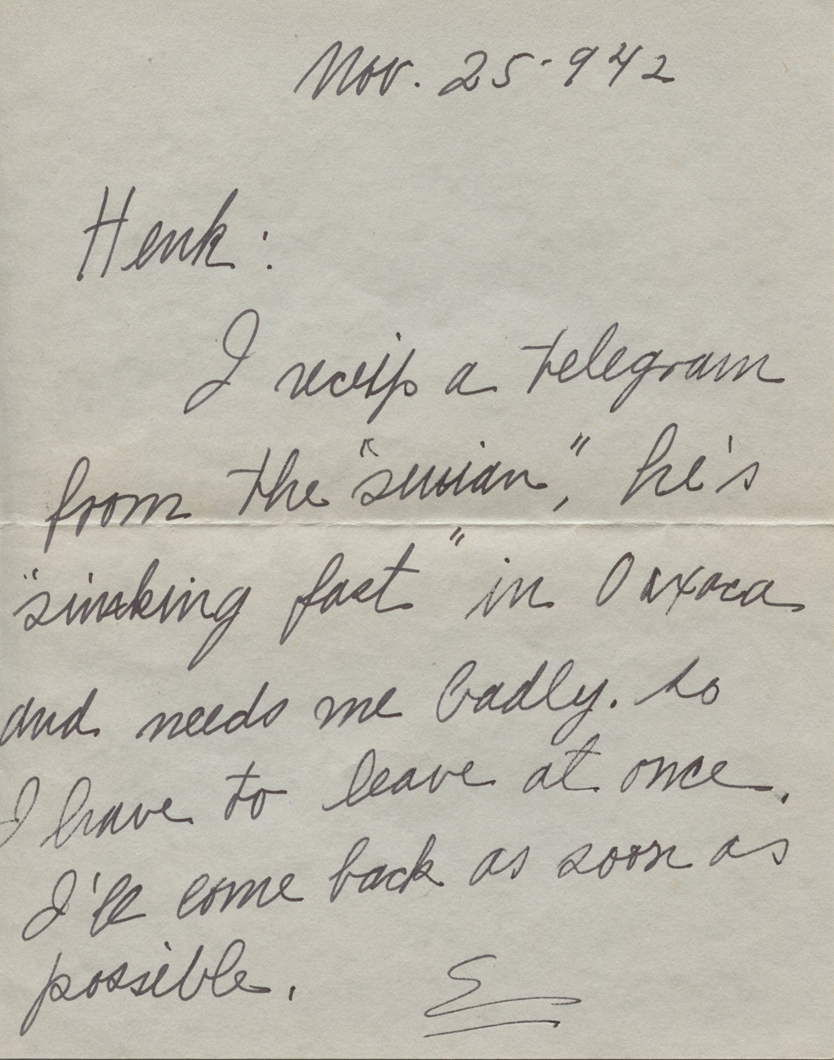 Nov. 25-942
Henk:
I a telegram
from the he's
"sinking fast" in Oaxaca
and needs me badly. so
I have to leave at once.
I'll come back as soon as
possible. E